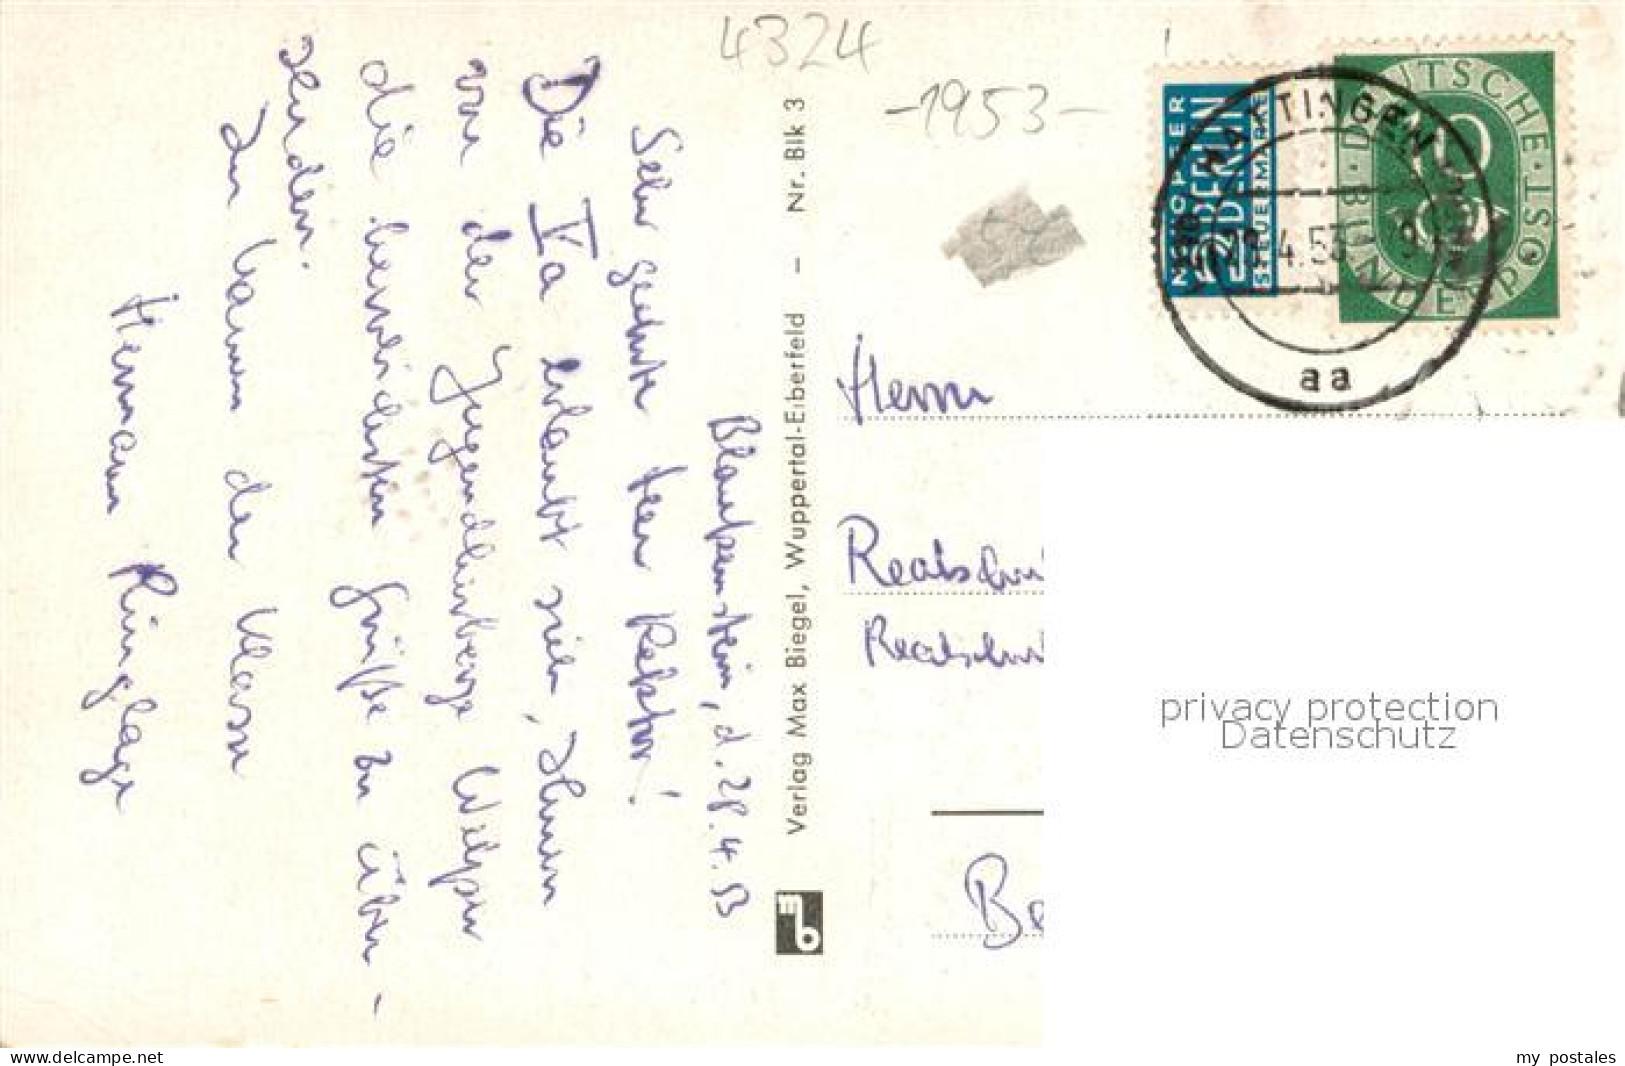 4324
-1953-
Blankenstein, d. 28.4.53
Sehr geehrter Herr Rektor!
Die Va erlaubt sich, Ihnen
von der Jugendherberge Welper
die herzlichsten Grüße zu über-
senden.
Im Namen der Klasse
Hermann Ringlage
Verlag Max Biegel, Wuppertal-Elberfeld – Nr. Blk 3
NOTOPFER
2 BERLIN
STEUERMARKE
DEUTSCHE BUNDESPOST
10
HATTINGEN
4.53
aa
Herrn
Realschul
Realschul
Be
privacy protection
Datenschutz
www.delcampe.net
my postales